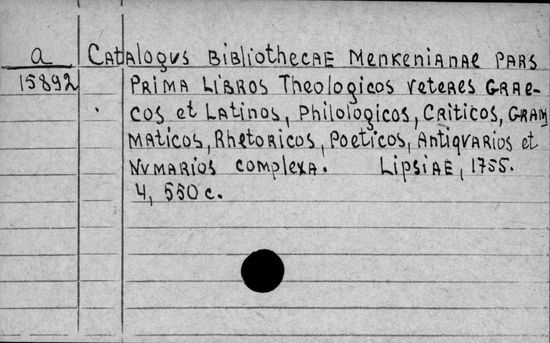 a Catalogvs Bibliothecae Menkenianae pars
15892 prima libros theologicos veteres Grae-
cos et Latinos, philologicos, criticos, gram
maticos, rhetoricos, poeticos, antiqvarios et
nvmarios complexa. Lipsiae, 1755.
4, 550 c.